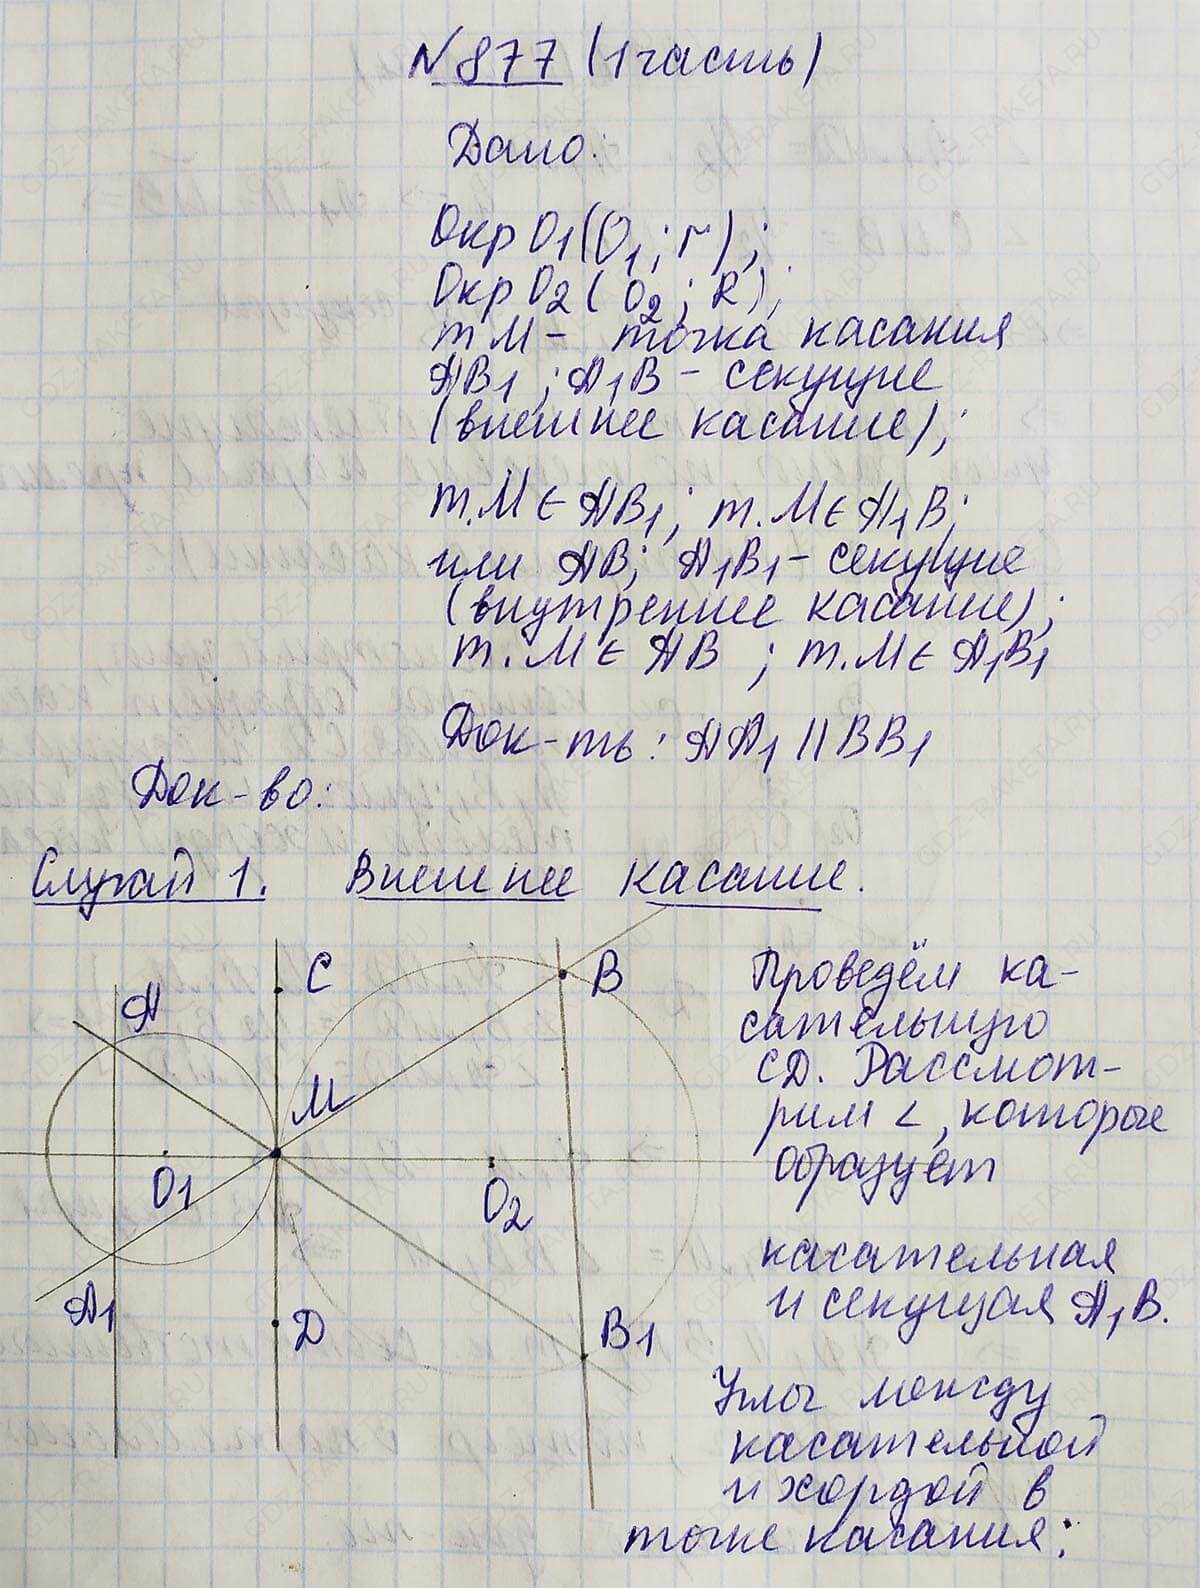 №877 (1 часть)
Дано:
Окр О1 (О1; r);
Окр О2 (О2; R);
т М - точка касания
АВ1; А1В - секущие
(внешнее касание);
т. М ∈ АВ1; т. М ∈ А1В;
или АВ; А1В1 - секущие
(внутреннее касание);
т. М ∈ АВ; т. М ∈ А1В1
Док-ть: АА1 || ВВ1
Док-во:
Случай 1. Внешнее касание.
С
В
А
М
О1
О2
А1
Д
В1
Проведём ка-
сательную
СД. Рассмот-
рим ∠, которые
образует
касательная
и секущая А1В.
Углы между
касательной
и хордой в
точке касания: